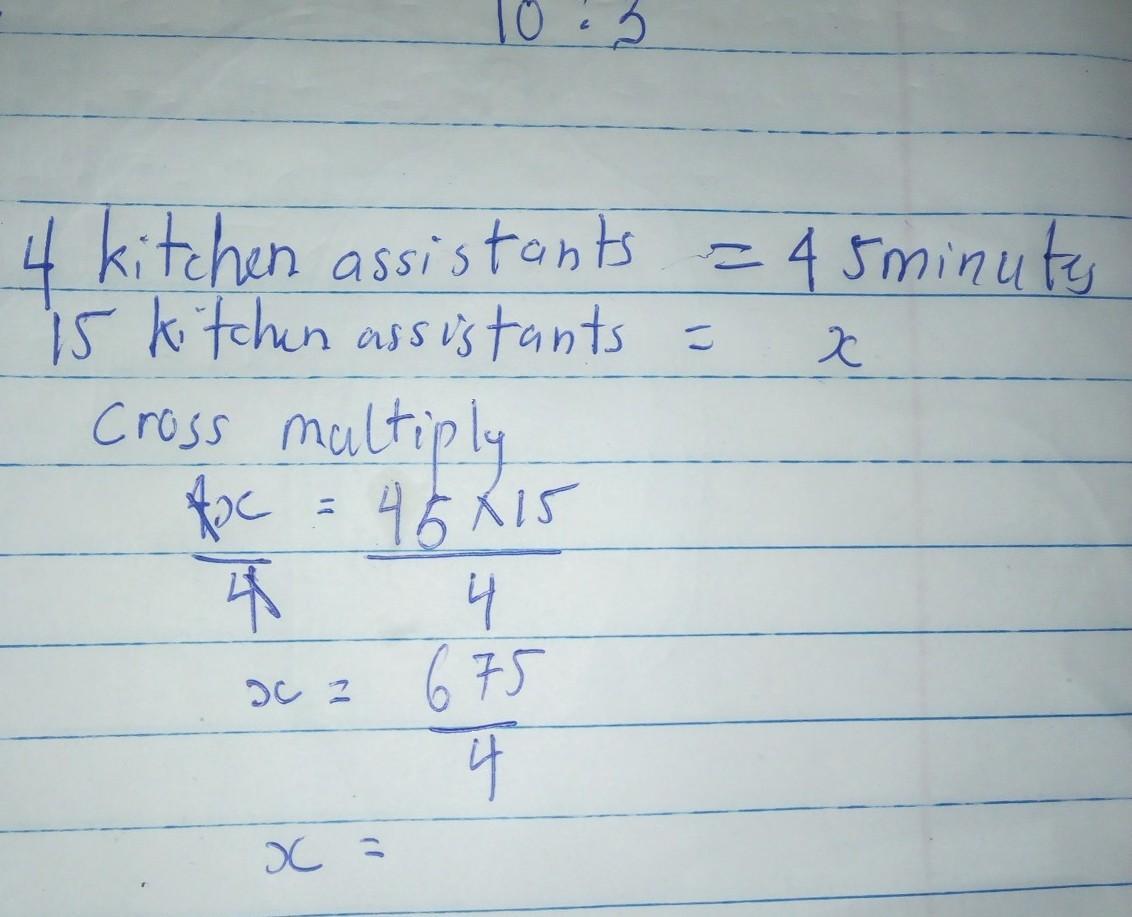 10 : 3
4 kitchen assistants = 45minutes
15 kitchen assistants = x
Cross multiply
4x = 45 x 15
4 4
x = 675
4
x =